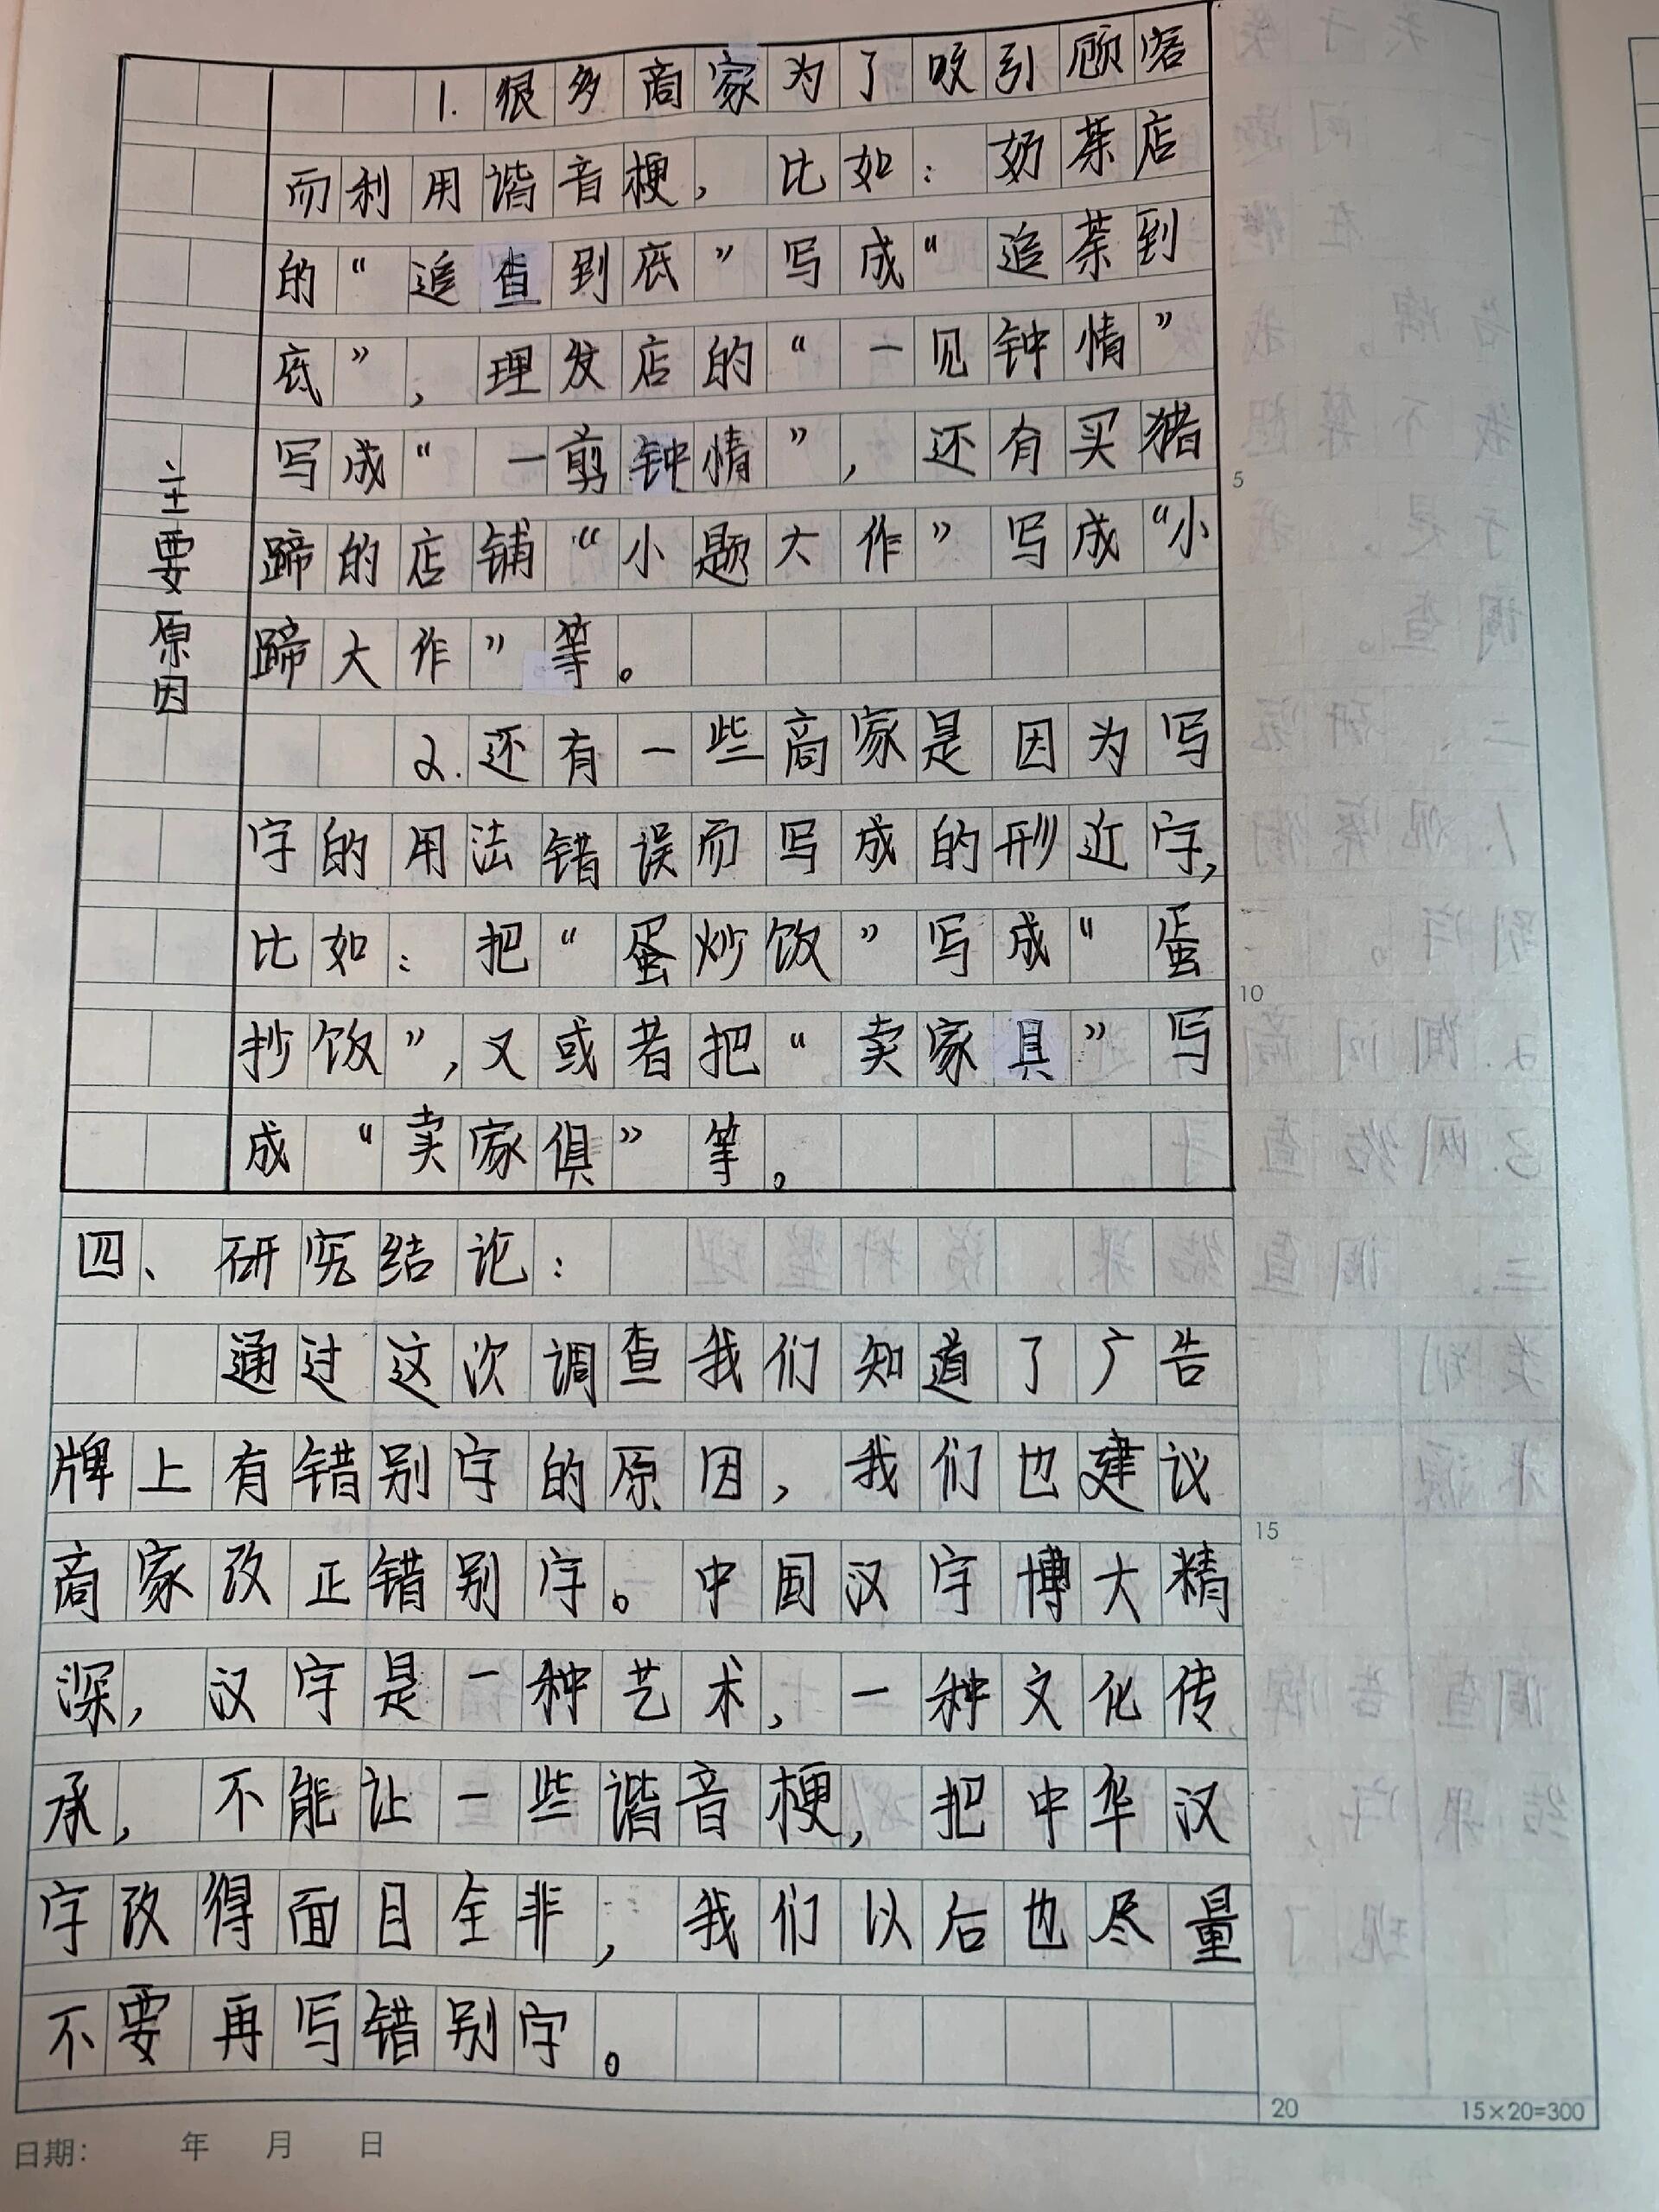 1.很多商家为了吸引顾客
而利用谐音梗，比如：奶茶店
的“追查到底”写成“追茶到
底”，理发店的“一见钟情”
写成“一剪钟情”，还有买猪
蹄的店铺“小题大作”写成“小
蹄大作”等。
主要原因
2.还有一些商家是因为写
字的用法错误而写成的形近字，
比如：把“蛋炒饭”写成“蛋
抄饭”，又或者把“卖家具”写
成“卖家俱”等。
四、研究结论：
通过这次调查我们知道了广告
牌上有错别字的原因，我们也建议
商家改正错别字。中国汉字博大精
深，汉字是一种艺术，一种文化传
承，不能让一些谐音梗，把中华汉
字改得面目全非，我们以后也尽量
不要再写错别字。
5
10
15
20
15×20=300
日期： 年 月 日